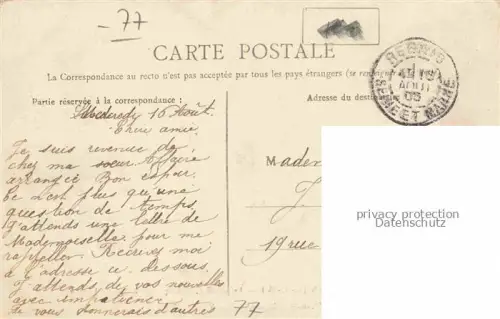 -77
CARTE POSTALE
La Correspondance au recto n'est pas acceptée par tous les pays étrangers (se renseign
Partie réservée à la correspondance :
Adresse du destin
SEINE ET MARNE
AOUT
05
Mercredy 16 Août.
Chère amie,
Je suis revenue de
chez ma soeur Affaire
arrangée Bon espoir.
Ce n'est plus qu'une
question de temps
J'attends une lettre de
Mademoiselle pour me
rappeller. Ecrivez moi
à l'adresse ci dessous,
J'attends de vos nouvelles
avec impatience
de vous donnerais d'autres
77
Madem
J
19 rue
privacy protection
Datenschutz